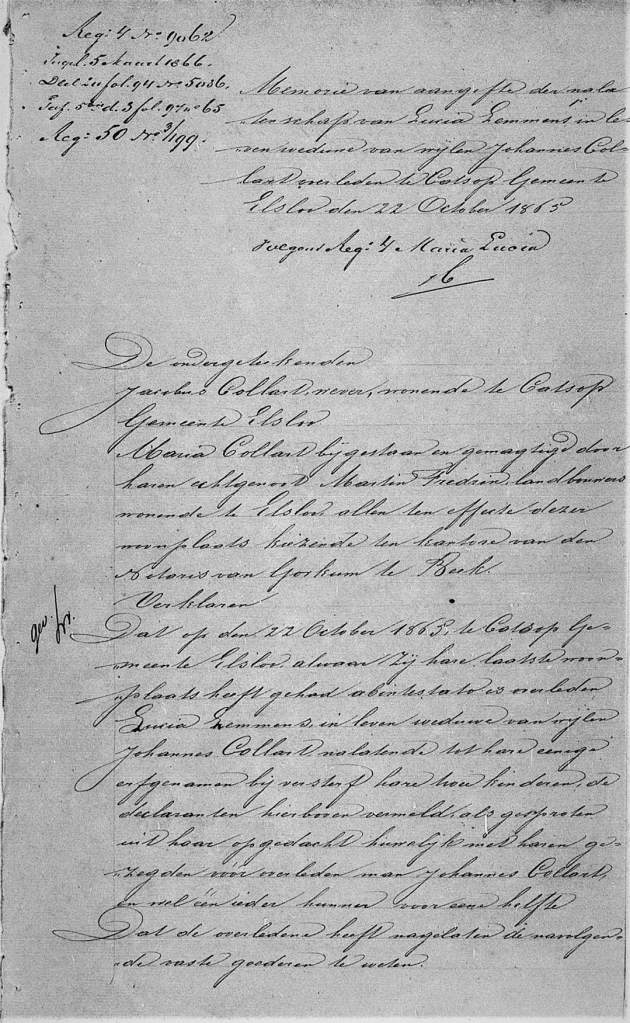 Reg: 4 No 9062
Ingel. 5 Maart 1866.
Deel 20 fol. 94 No 5036.
5 d. 3 fol. 97 no 65
Reg: 50 No 3/199.
Memorie van aangifte der nala
tenschap van Lucia Lemmens in le-
ven weduwe van wijlen Johannes Col-
lart overleden te Catsop Gemeente
Elsloo den 22 October 1865
volgens Reg: 4 Maria Lucia
16
De ondergeteekenden
Jacobus Collart, wever, wonende te Catsop
Gemeente Elsloo
Maria Collart bijgestaan en gemagtigd door
haren echtgenoot Martin Fredrix, landbouwers
wonende te Elsloo allen ten effecte dezer
woonplaats kiezende ten kantore van den
Notaris van Gorkum te Beek.
Verklaren
Dat op den 22 October 1865, te Catsop Ge-
meente Elsloo, alwaar zij hare laatste woon-
plaats heeft gehad abintestato is overleden
Lucia Lemmens, in leven weduwe van wijlen
Johannes Collart, nalatende tot hare eenige
erfgenamen bij versterf hare twee kinderen, de
declaranten hierboven vermeld, als gesproten
uit haar opgedacht huwelijk met haren ge-
zegden vóór overleden man Johannes Collart,
en wel één ieder hunner voor eene helfte
Dat de overledene heeft nagelaten de navolgen-
de vaste goederen te weten.
gev.